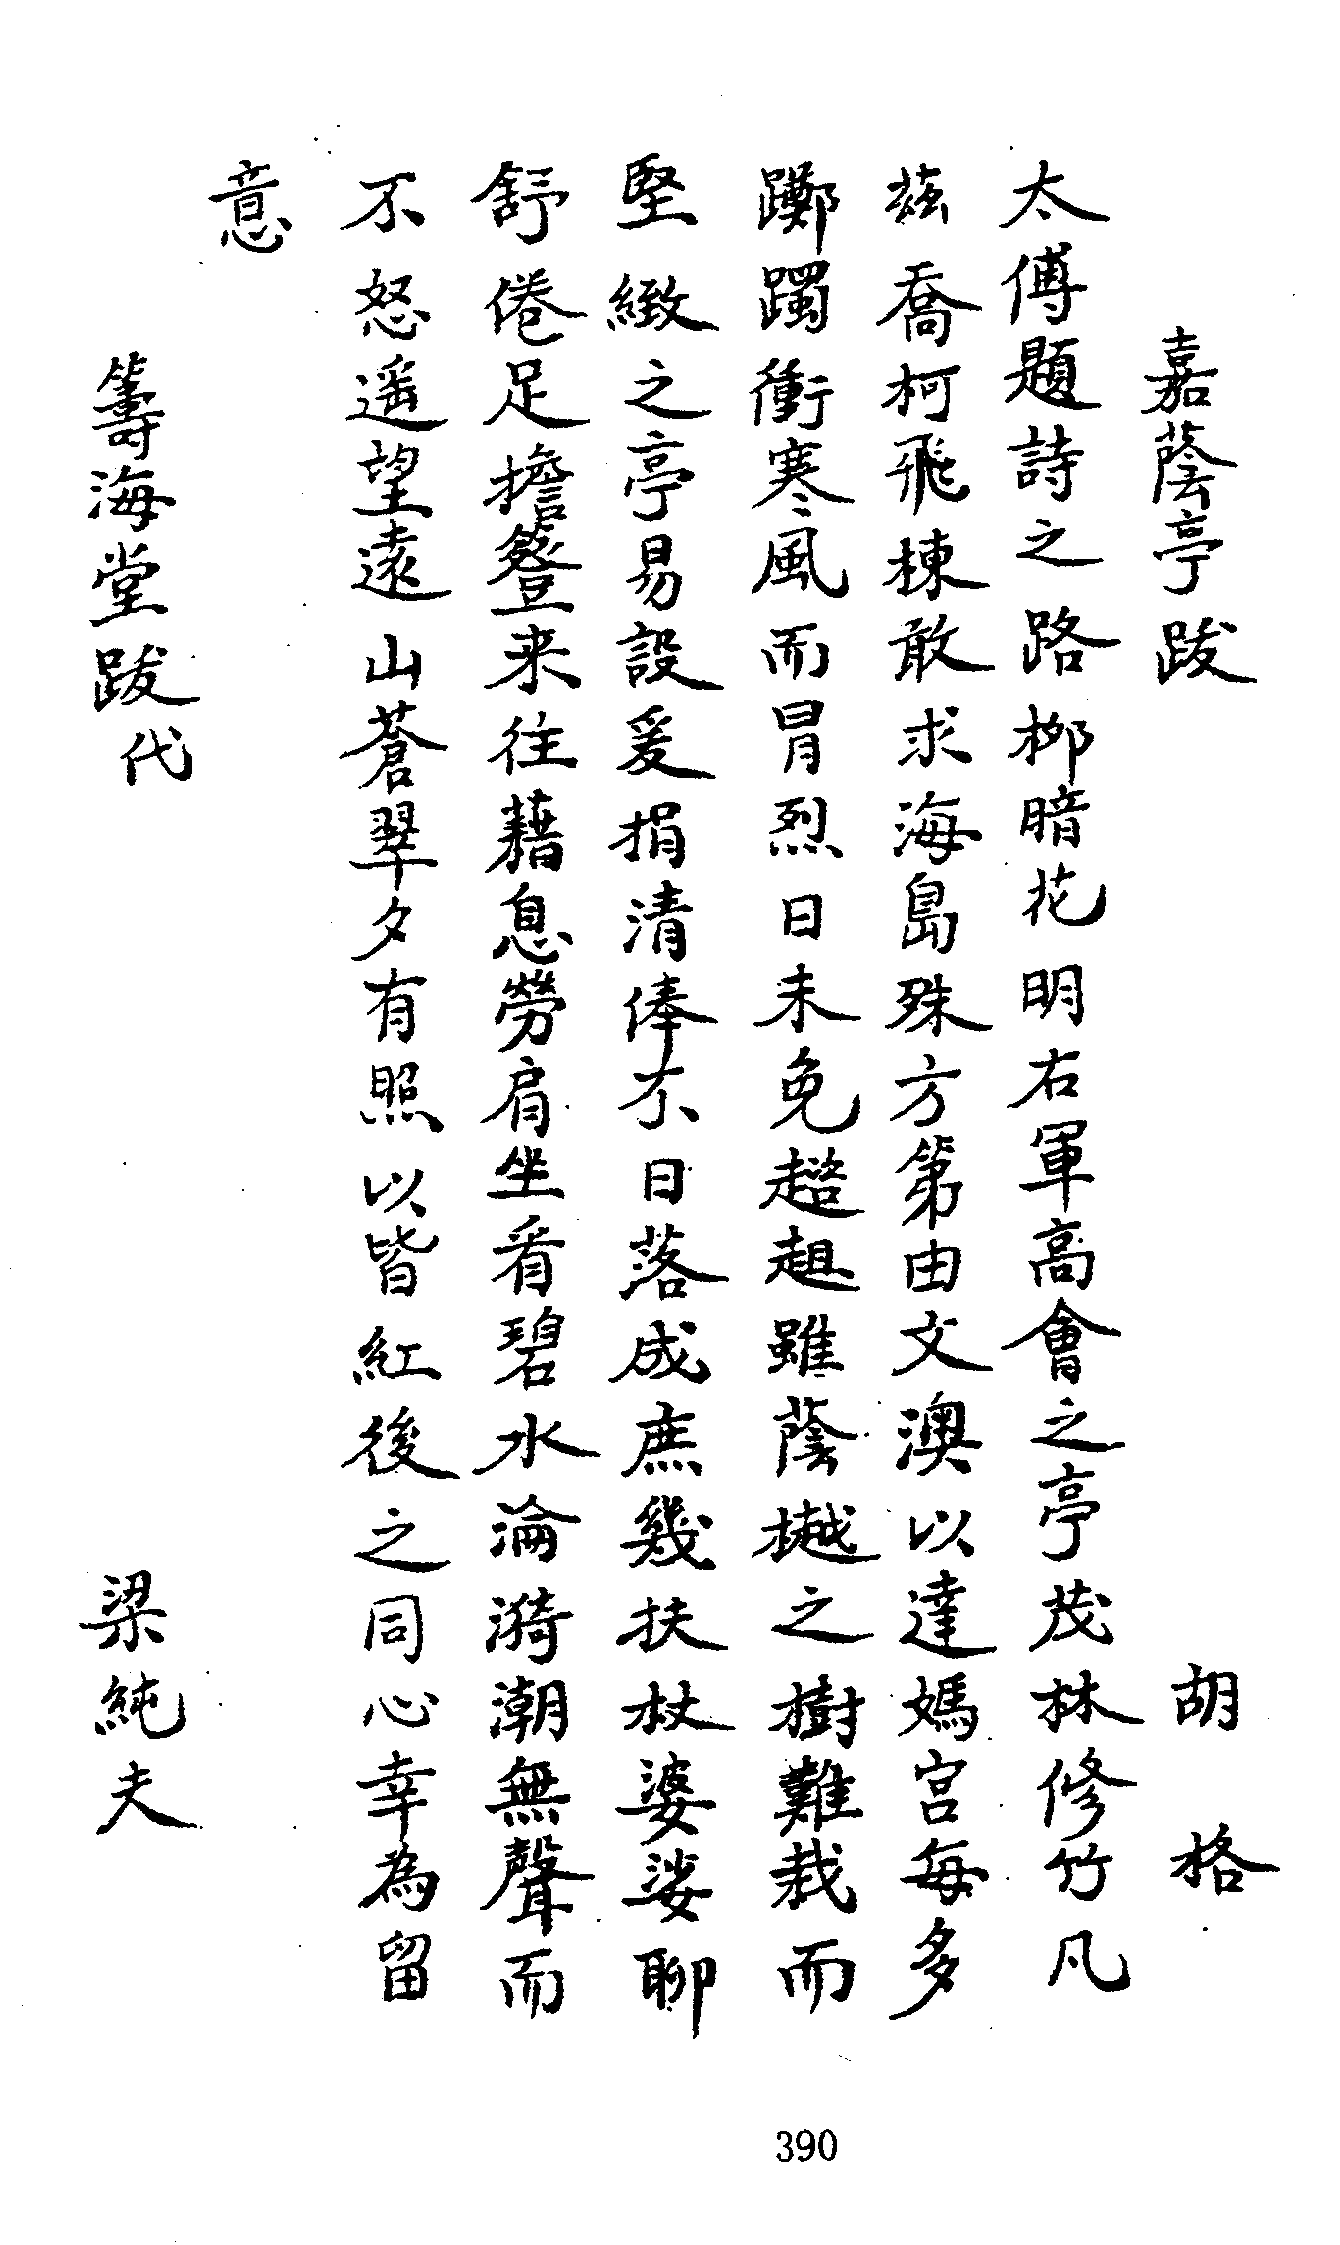 嘉蔭亭跋 胡格
太傅題詩之路柳暗花明右軍高會之亭茂林修竹凡
茲喬柯飛棟敢求海島殊方第由文澳以達媽宮每多
躑躅衝寒風而冒烈日未免趦趄雖蔭樾之樹難栽而
堅緻之亭易設爰捐清俸不日落成庶幾扶杖婆娑聊
舒倦足擔簦来往藉息勞肩坐看碧水淪漪潮無聲而
不怒遥望遠山蒼翠夕有照以皆紅後之同心幸為留
意
籌海堂跋代 梁純夫
390